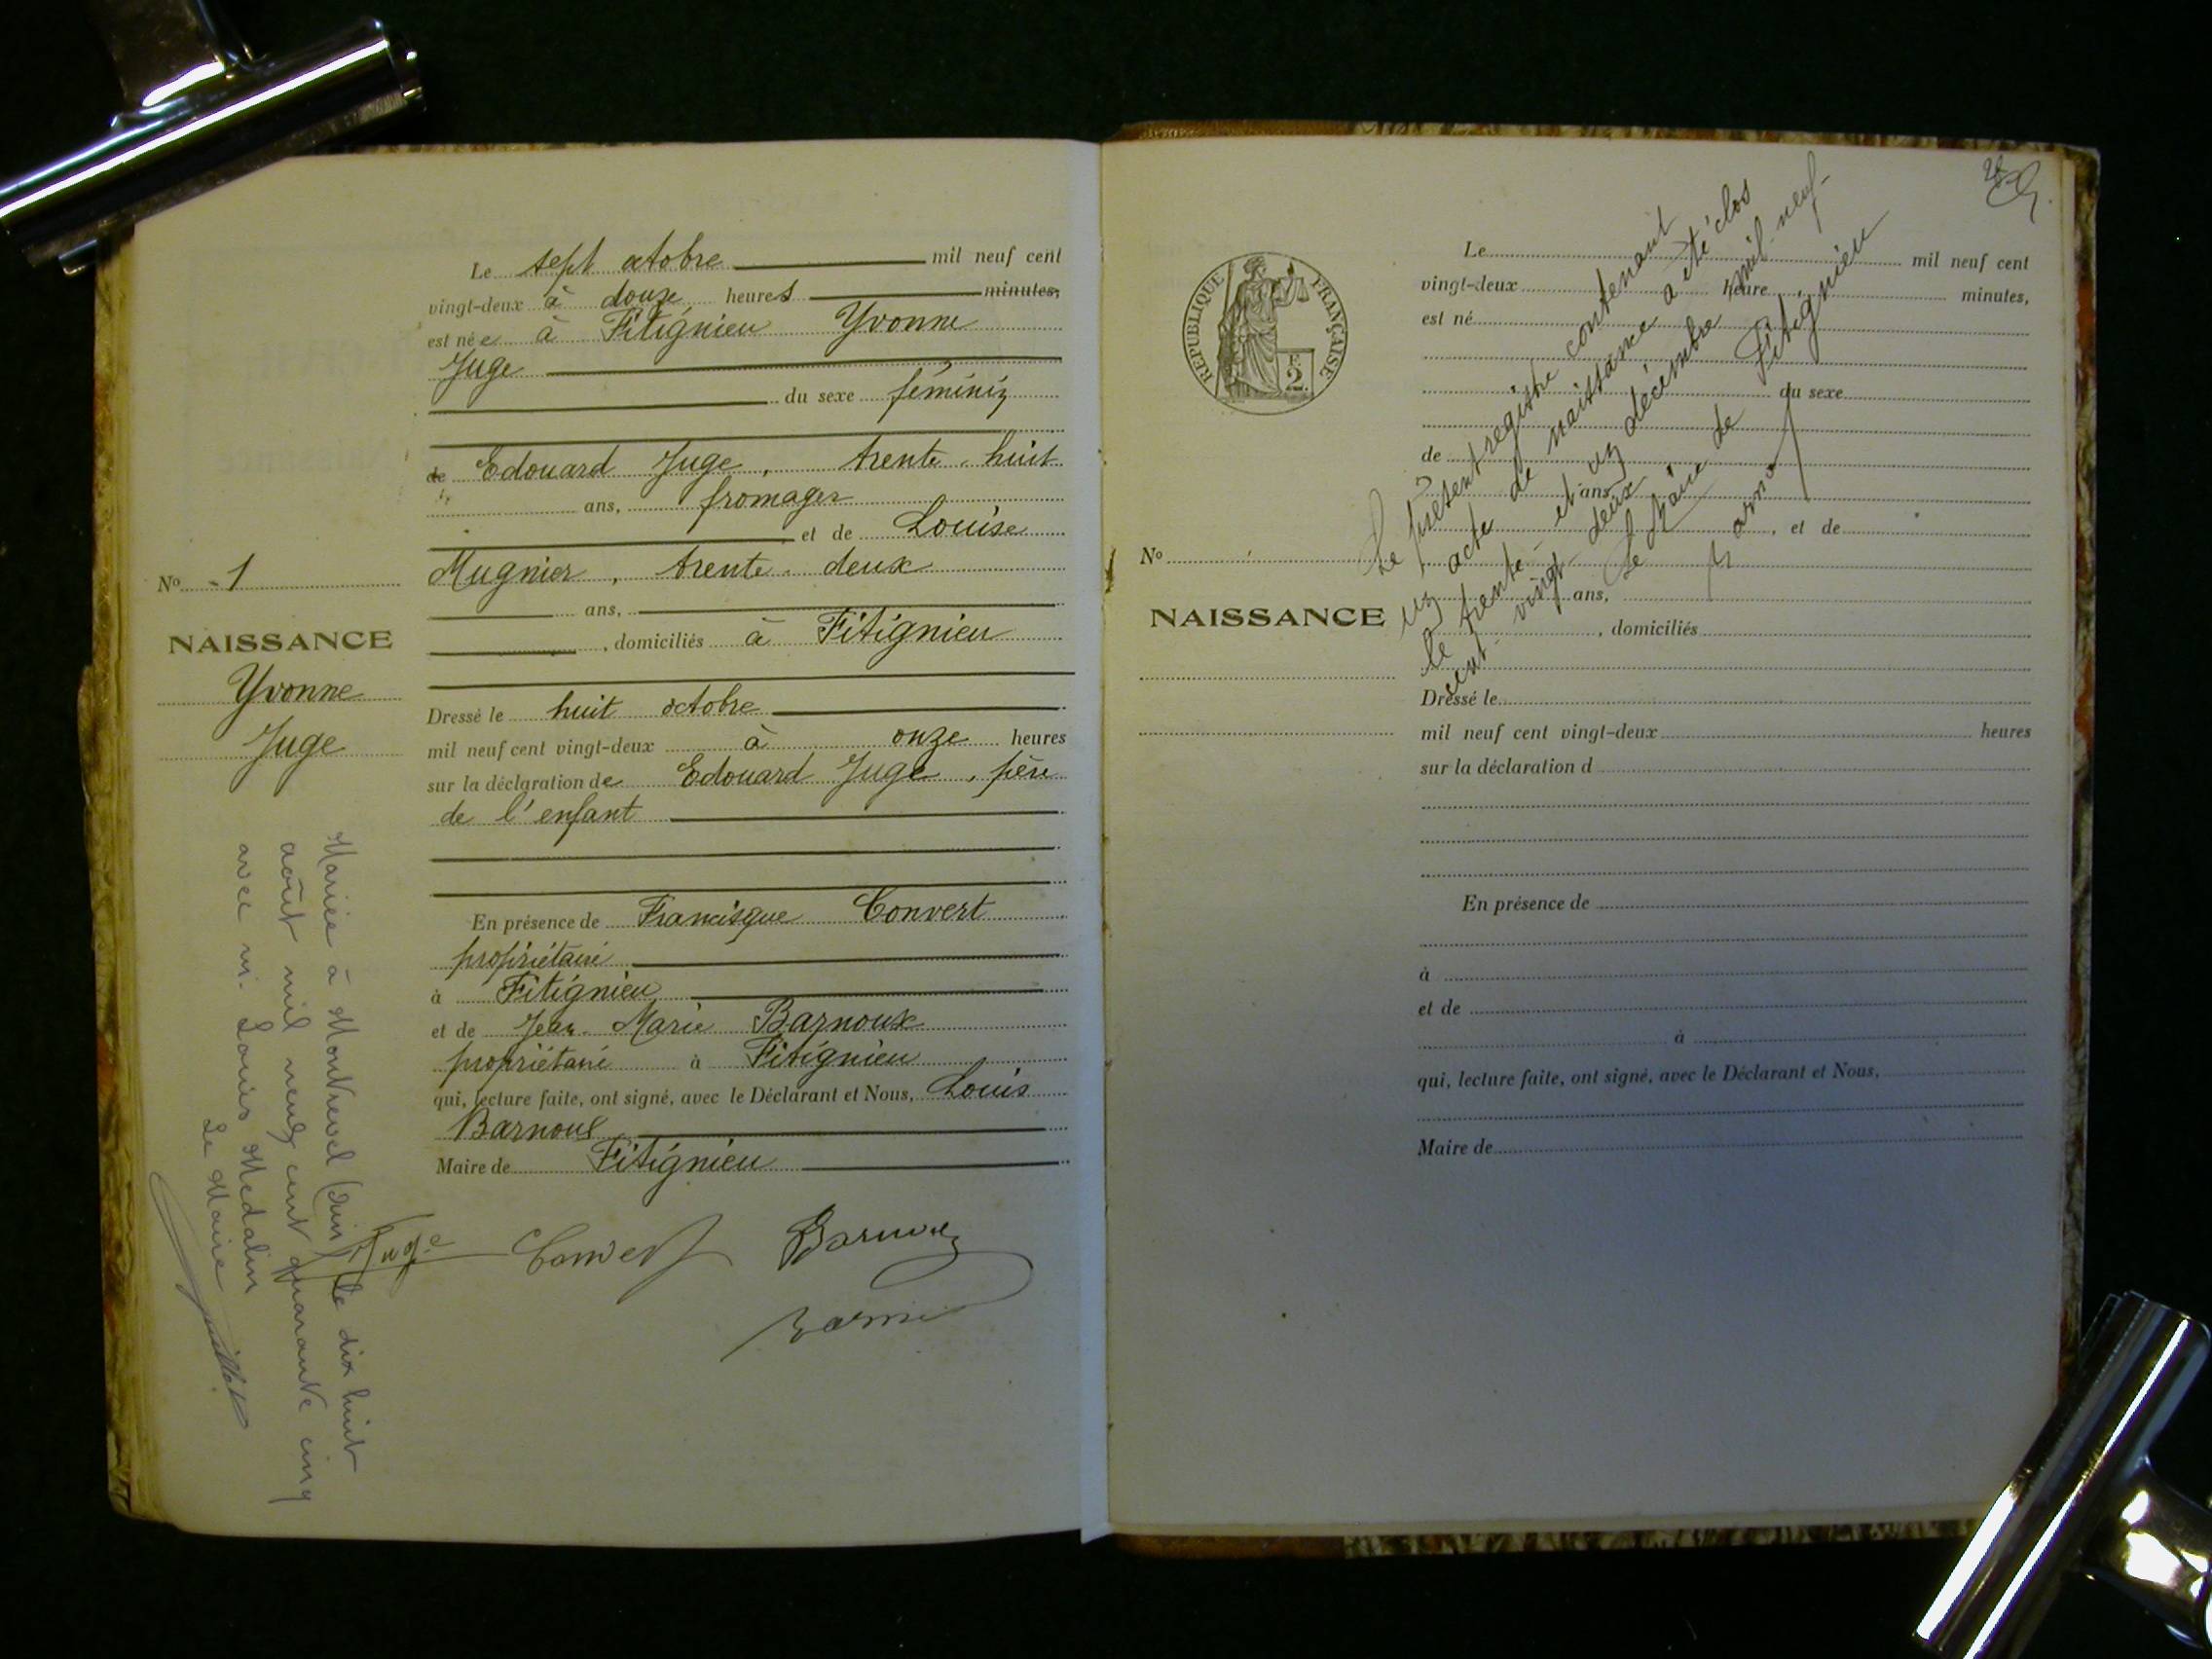 Le sept octobre mil neuf cent
vingt-deux à douze heures minutes,
est née à Fitignieu Yvonne
Juge
du sexe féminin
de Edouard Juge, trente-huit
ans, fromager
et de Louise
Mugnier, trente-deux
ans,
, domiciliés à Fitignieu
Dressé le huit octobre
mil neuf cent vingt-deux à onze heures
sur la déclaration de Edouard Juge, père
de l'enfant
En présence de Francisque Convert
propriétaire
à Fitignieu
et de Jean-Marie Barnoux
propriétaire à Fitignieu
qui, lecture faite, ont signé, avec le Déclarant et Nous, Louis
Barnoud
Maire de Fitignieu
Juge Convert
No 1
NAISSANCE
Yvonne
Juge
Mariée à Montrevel (Ain) le dix huit
août mil neuf cent quarante cinq
avec m. Louis Medalin
Le Maire
REPUBLIQUE FRANÇAISE
2
Le mil neuf cent
vingt-deux heure minutes,
est né
du sexe
de
ans
, et de
ans,
, domiciliés
No
NAISSANCE
Dressé le
mil neuf cent vingt-deux heures
sur la déclaration d
En présence de
à
et de
à
qui, lecture faite, ont signé, avec le Déclarant et Nous,
Maire de
Le présent registre contenant
un acte de naissance a été clos
le trente-et un décembre mil-neuf-
cent-vingt-deux
Le Maire de Fitignieu